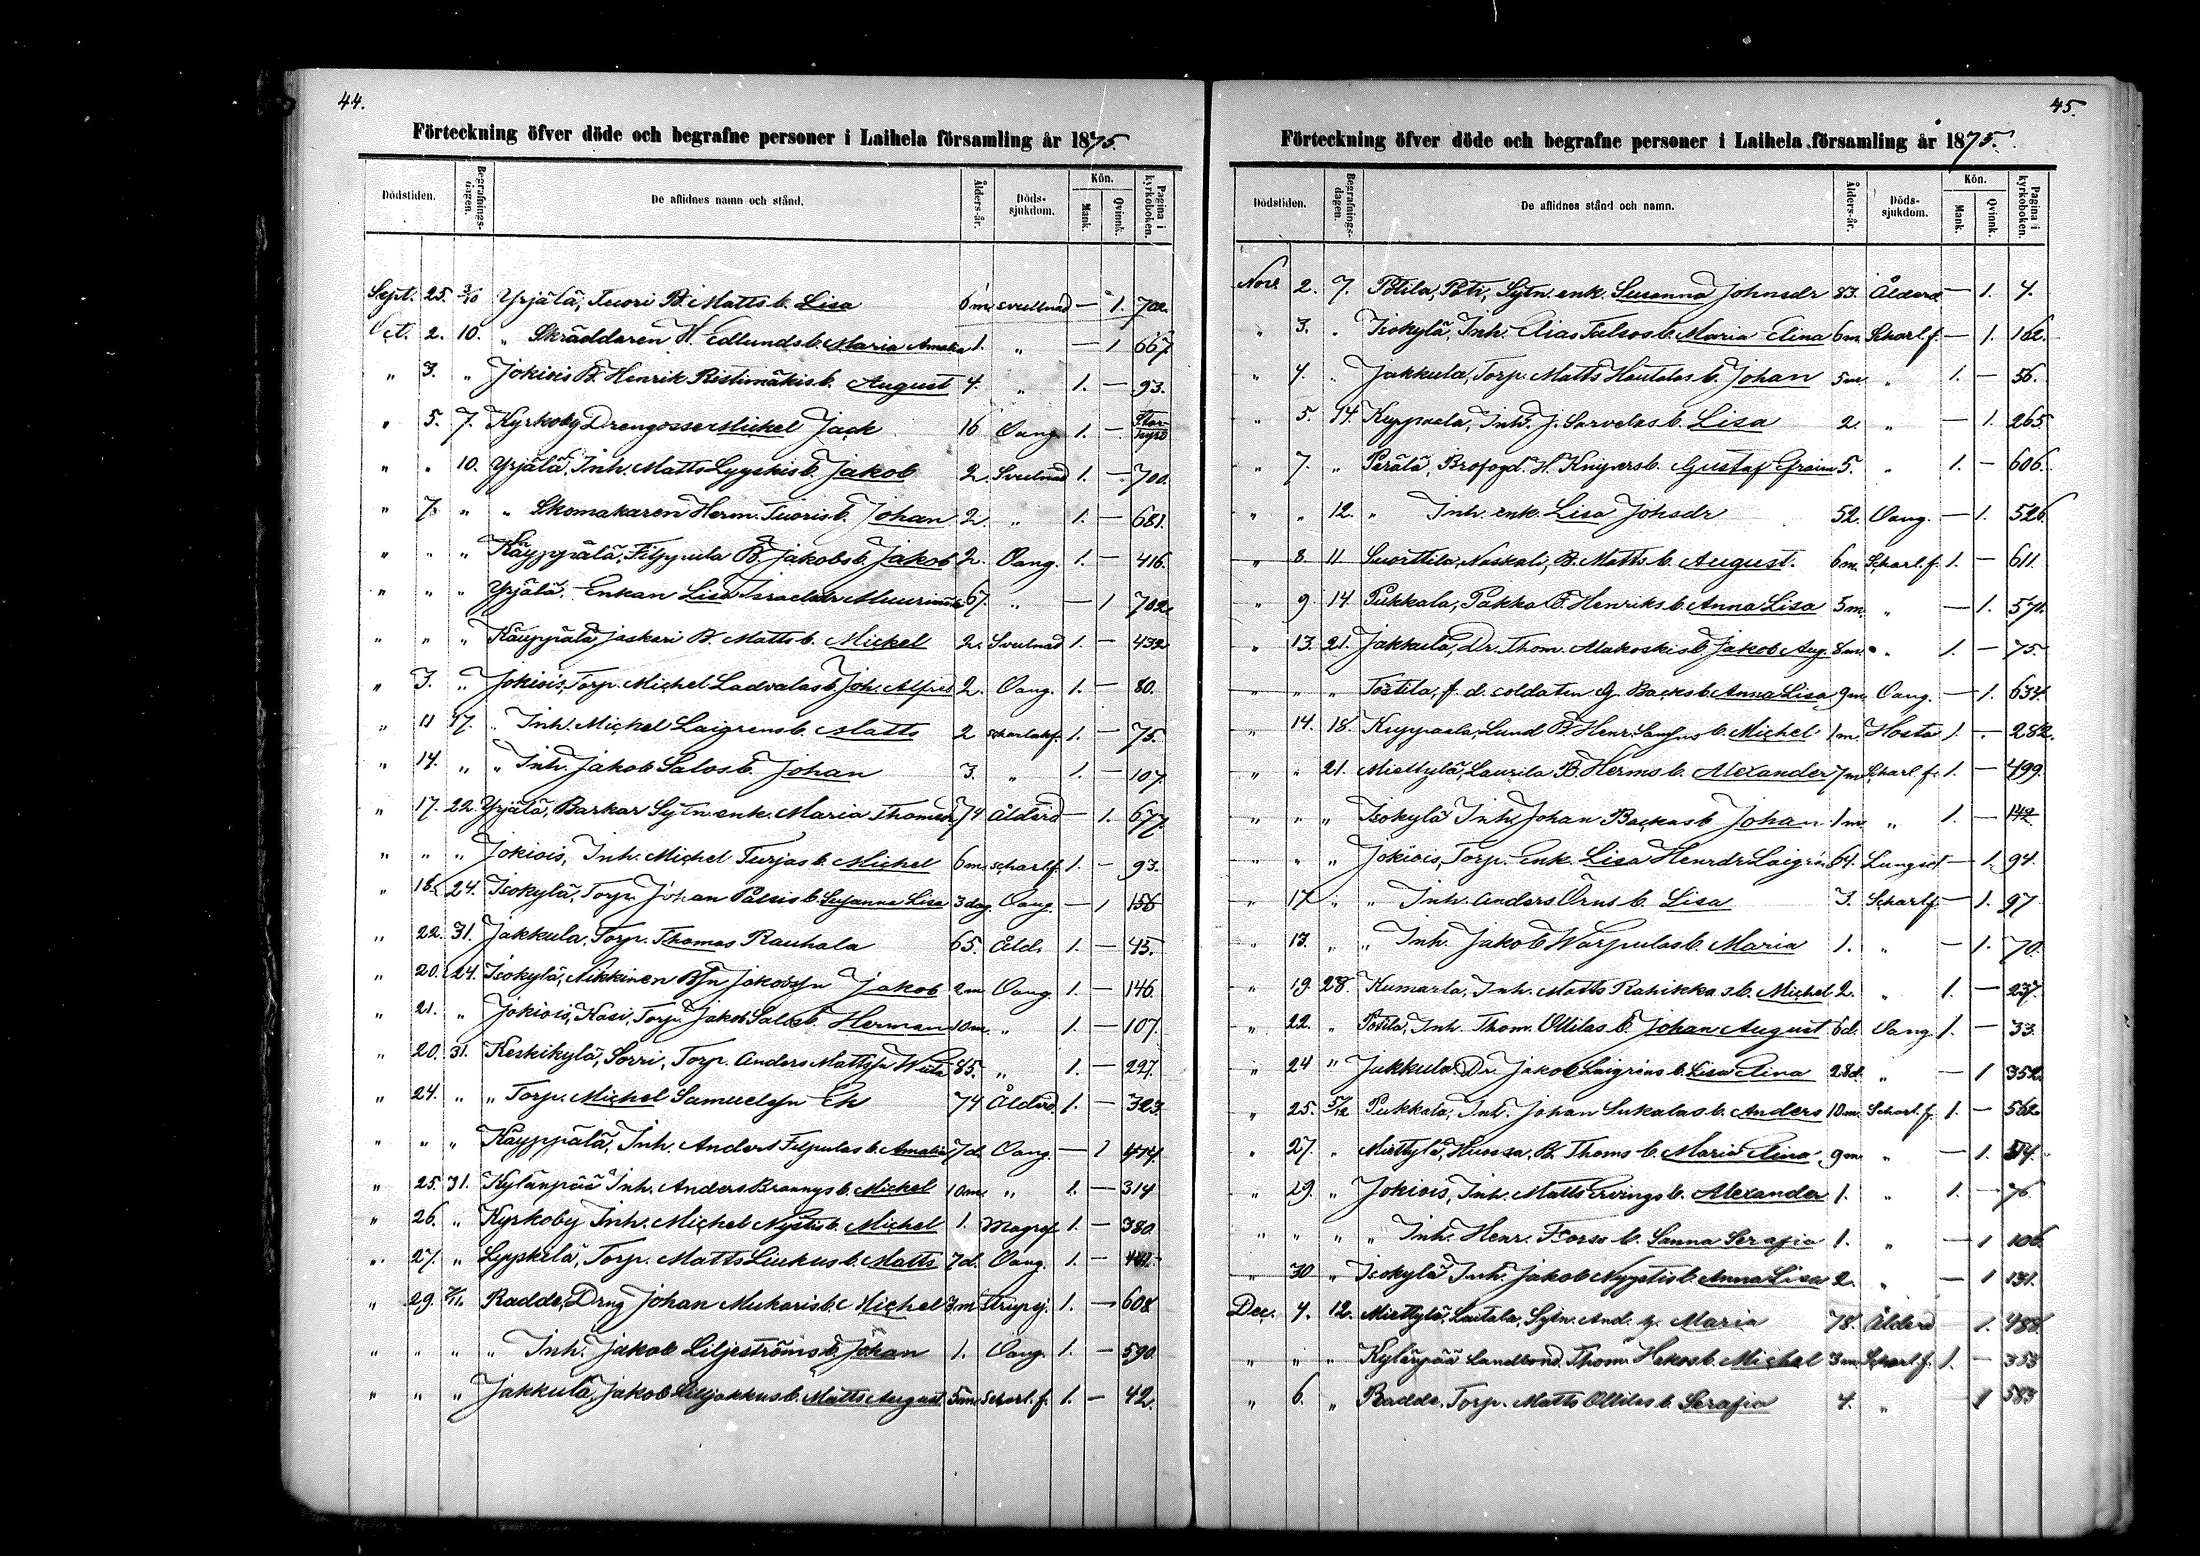 44.
Förteckning öfver döde och begrafne personer i Laihela församling år 1875.
Dödstiden. Begrafningsdagen. De aflidnes namn och stånd. Ålders-år. Dödssjukdom. Kön. Mank. Qvinnk. Pagina i kyrkoboken.
Sept. 25. 3/10 Yrjälä, Tuori B. Matts b. Lisa 6m svullnad — 1. 702.
Oct. 2. 10. " Skräddaren H. Edlunds b. Maria Amalia 1. " — 1 667.
" 3. " Jokiois B. Henrik Ristimäkis b. August 4. " 1. — 93.
" 5. 7. Kyrkoby Drengosse Mickel Jack 16 Oang. 1. —
" " 10. Yrjälä, Inh. Matts Lyyskis b. Jakob 2. Svullnad 1. — 700.
" 7. " " Skomakaren Herm. Tuoris b. Johan 2. " 1. — 681.
" " " Käyppälä, Filppula B. Jakobs b. Jakob 2. Oang. 1. — 416.
" " " Yrjälä, Enkan Lisa Israelsdr 67. " — 1 702.
" " " Käuppälä, Jaskari B. Matts b. Mickel 2. Svullnad 1. — 432
" 3. " Jokiois, Torp. Michel Ladvalas b. Joh. Alfred 2. Oang. 1. — 80.
" 11 17. " Inh. Michel Laigrens b. Matts 2 scharlakf. 1. — 75.
" 14. " " Inh. Jakob Salos b. Johan 3. " 1. — 107.
" 17. 22. Yrjälä, Barkar Sytn. enk. Maria Thomasdr 74 Ålderd — 1. 677.
" " " Jokiois, Inh. Michel Turjas b. Michel 6m. scharl.f. 1. — 93.
" 16. 24. Isokylä, Torp. Johan Palsis b. Susanna Lisa 3 dag. Oang. — 1 156
" 22. 31. Jakkula, Torp. Thomas Rauhala 65. Åld. 1. — 45.
" 20. 24. Isokylä, Nikkinen Bsn Jakob Jakob 2m. Oang. 1. — 146.
" 21. " Jokiois, Kasi, Torp. Jakob Salos b. Herman 10m. " 1. — 107.
" 20. 31. Keskikylä, Sorri, Torp. Anders Mattsn 85. " 1. — 227.
" 24. " " Torp. Michel Samuelsn Ek 74 Ålderd. 1. — 323.
" " " Käyppälä, Inh. Anders Filpulas b. Amalia 7d. Oang. — 1 414.
" 25. 31. Kylänpää Inh. Anders Brannys b. Mickel 10m. " 1. — 314
" 26. " Kyrkoby Inh. Michel Nystis b. Michel 1. Magref. 1. — 380.
" 27. " Lyyskilä, Torp. Matts Liukus b. Matts 7d. Oang. 1. — 442.
" 29. 7/11. Radde, Drng Johan Mukaris b. Michel 3m Strupsj. 1. — 608
" " " " Inh. Jakob Liljeströms b. Johan 1. Oang. 1. — 590.
" " " Jakkula, Jakob b. Matts August 5m. Scharl.f. 1. — 42.
45.
Förteckning öfver döde och begrafne personer i Laihela församling år 1875.
Dödstiden. Begrafningsdagen. De aflidnes stånd och namn. Ålders-år. Dödssjukdom. Kön. Mank. Qvinnk. Pagina i kyrkoboken.
Nov. 2. 7. Potila, Poti, Sytn. enk. Susanna Johnsdr 83. Ålderd — 1. 4.
" 3. " Isokylä, Inh. Elias Talsos b. Maria Elina 6m. Scharl.f. — 1. 162.
" 4. " Jakkula, Torp. Matts Hautalas b. Johan 5m. " 1. — 56.
" 5. 14. Kuppaala, Inh. J. Sarvelas b. Lisa 2. " — 1. 265
" 7. " Perälä, Brofogd. H. Knipers b. Gustaf Efraim 5. " 1. — 606.
" " 12. " Inh. enk. Lisa Johsdr 52. Oang. — 1. 526.
" 8. 11 Suorttila, Naskali, B. Matts b. August. 6m. Scharl.f. 1. — 611.
" 9. 14. Pukkala, Pakka B. Henriks b. Anna Lisa 5m. " — 1. 571.
" 13. 21. Jakkula, Dr. Thom. Alakoskis b. Jakob Aug. 8m. " 1. — 75.
" " " Tostila, f. d. soldaten G. Backs b. Anna Lisa 9m. Oang. — 1. 634.
" 14. 18. Kuppaala, Lund B. Henr. b. Michel 1m. Hosta 1. — 282.
" " 21. Miettylä, Laurila B. Herms b. Alexander 7m Scharl.f. 1. — 499.
" " " Isokylä Inh. Johan Backas b. Johan 1m. " 1. — 142
" " " Jokiois, Torp. Enk. Lisa Henrdr Laigrén 64. Lungsot — 1. 94.
" 17 " " Inh. Anders Örns b. Lisa 3. Scharlf. — 1. 97
" 13. " " Inh. Jakob Warpulas b. Maria 1. " — 1. 70.
" 19. 28. Kumarla, Inh. Matts Rahikkas b. Michel 2. " 1. — 237.
" 22. " Potila, Inh. Thom. Ollilas b. Johan August 6d. Oang. 1. — 33.
" 24 " Jakkula, Dr. Jakob Laigréns b. Lisa Elina 28d. " — 1 352.
" 25. 5/12 Pukkala, Inh. Johan Sukalas b. Anders 10m. Scharl.f. 1. — 562
" 27. " Miettylä, Hurssa, B. Thoms b. Maria Elina 9m. " — 1. 514.
" 29. " Jokiois, Inh. Matts Ervings b. Alexander 1. " 1. — 76.
" " " " Inh. Henr. Forss b. Sanna Serafia 1. " — 1 106.
" 30 " Isokylä Inh. Jakob Nygstis b. Anna Lisa 2. " — 1 131.
Dec. 4. 12. Miettylä, Lautala, Sytn. And. h. Maria 78. Ålderd — 1. 488.
" " " Kylänpää Landbond. Thom. Hakos b. Michel 3m. Scharl.f. 1. — 353
" 6. " Radde, Torp. Matts Ollilas b. Serafia 4. " — 1 583